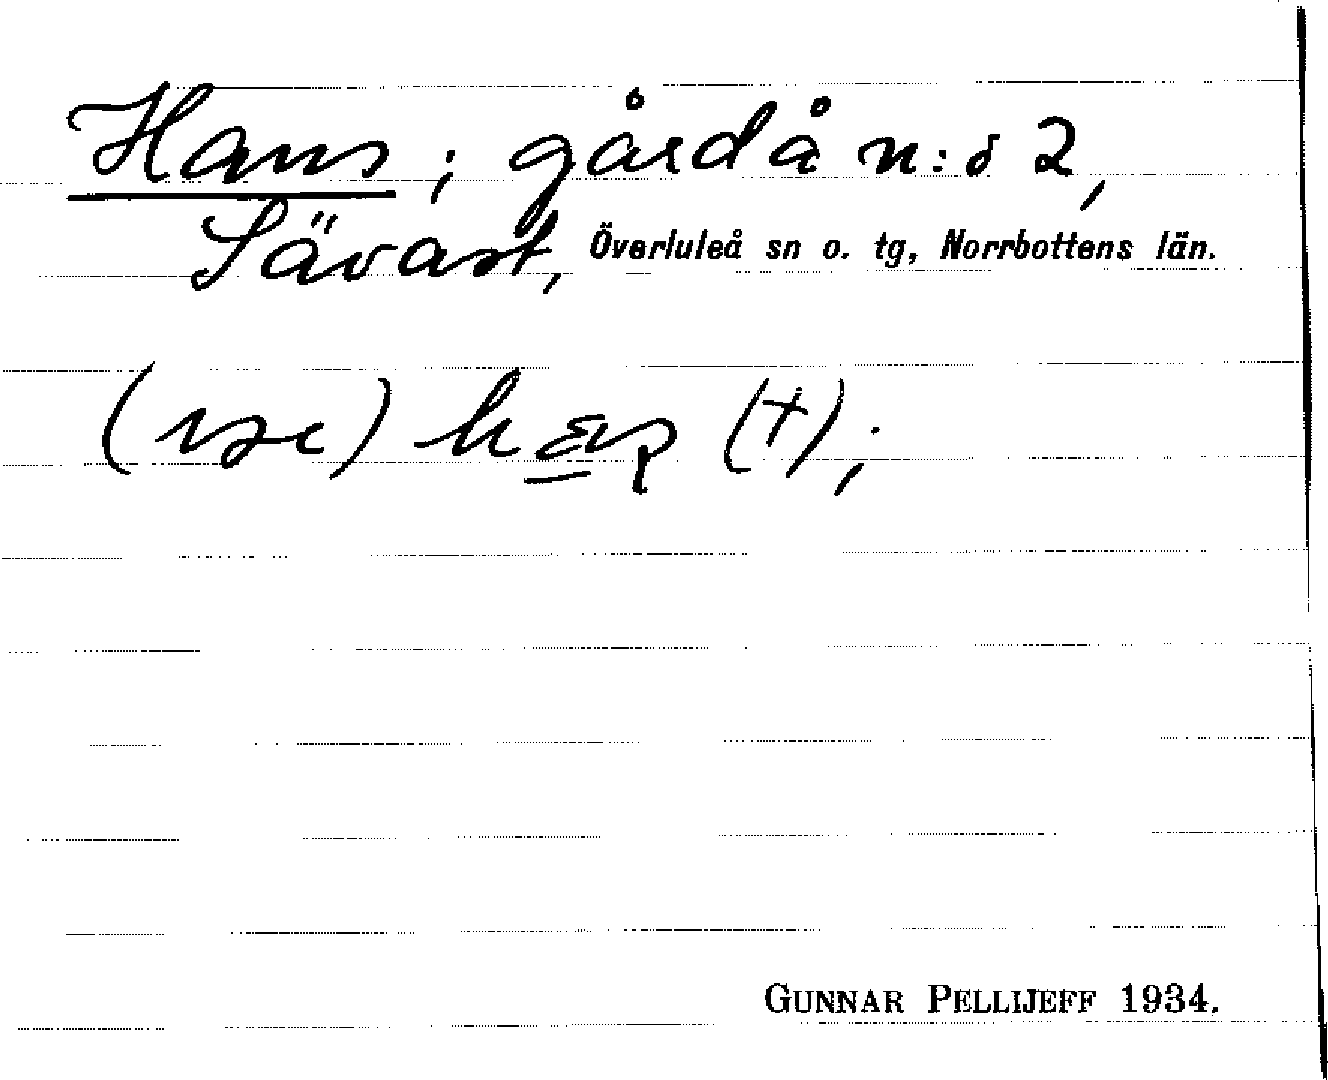 Hans; gård å n:o 2,
Sävast, Överluleå sn o. tg, Norrbottens län.
GUNNAR PELLIJEFF 1934.